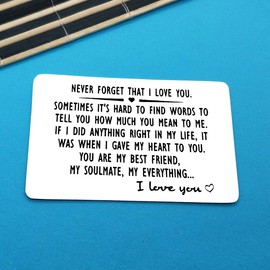 NEVER FORGET THAT I LOVE YOU.
SOMETIMES IT'S HARD TO FIND WORDS TO
TELL YOU HOW MUCH YOU MEAN TO ME.
IF I DID ANYTHING RIGHT IN MY LIFE, IT
WAS WHEN I GAVE MY HEART TO YOU.
YOU ARE MY BEST FRIEND,
MY SOULMATE, MY EVERYTHING...
I love you